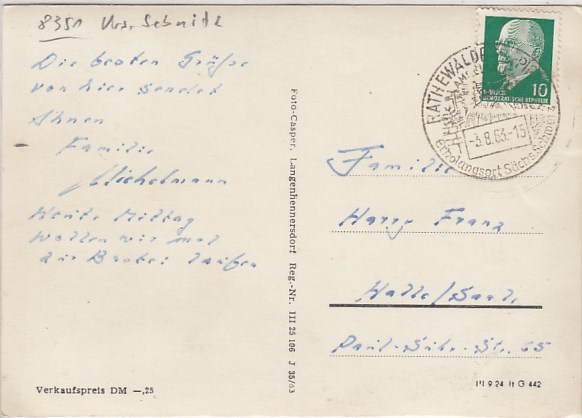 8351 Krs. Sebnitz
Die besten Grüße
von hier sendet
Ihnen
Familie
Michelmann
Heute Mittag
wollen wir mal
zur Bastei laufen
Foto-Casper, Langenhennersdorf Reg.-Nr. III 25 106 J 35/63
Verkaufspreis DM —,25
10
DEUTSCHE DEMOKRATISCHE REPUBLIK
RATHEWALDE
-3.8.63-15
Erholungsort Sächs. Schweiz
Familie
Harry Franz
Halle/Saale
Paul-Suhr-Str. 65
III 9 24 It G 442